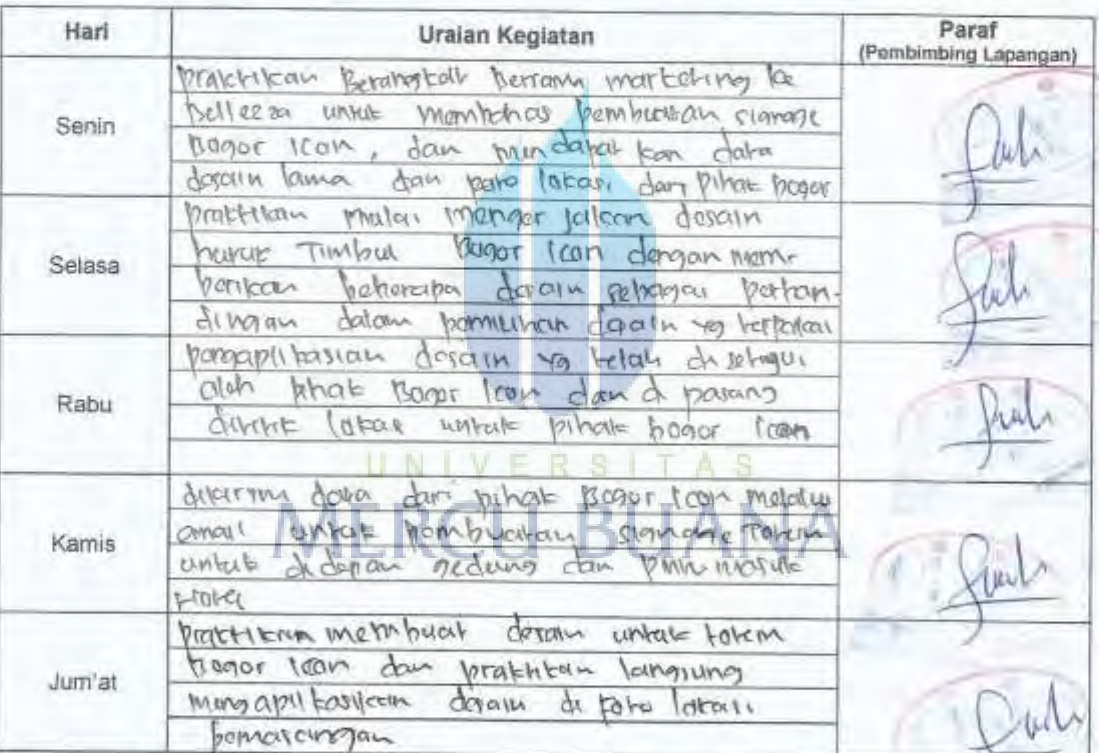 Hari Uraian Kegiatan Paraf
(Pembimbing Lapangan)
Senin
praktikan Berangkat bersama marketing ke
bellezza untuk membahas pembuatan signage
Bogor Icon, dan mendapat kan data
desain lama dan foto lokasi dari pihak bogor
Selasa
praktikan mulai mengerjakan desain
huruf Timbul Bogor Icon dengan mem-
berikan beberapa desain sebagai perban-
dingan dalam pemilihan desain yg
Rabu
pengaplikasian desain yg telah di setujui
oleh pihak Bogor Icon dan di pasang
lokasi untuk pihak bogor Icon
Kamis
dikirim data dari pihak Bogor Icon melalui
email untuk pembuatan signage Totem
untuk di depan gedung dan pintu masuk
Hotel
Jum'at
praktikan membuat desain untuk totem
Bogor Icon dan praktikan langsung
mengaplikasikan desain di foto lokasi
pemasangan
UNIVERSITAS
MERCU BUANA